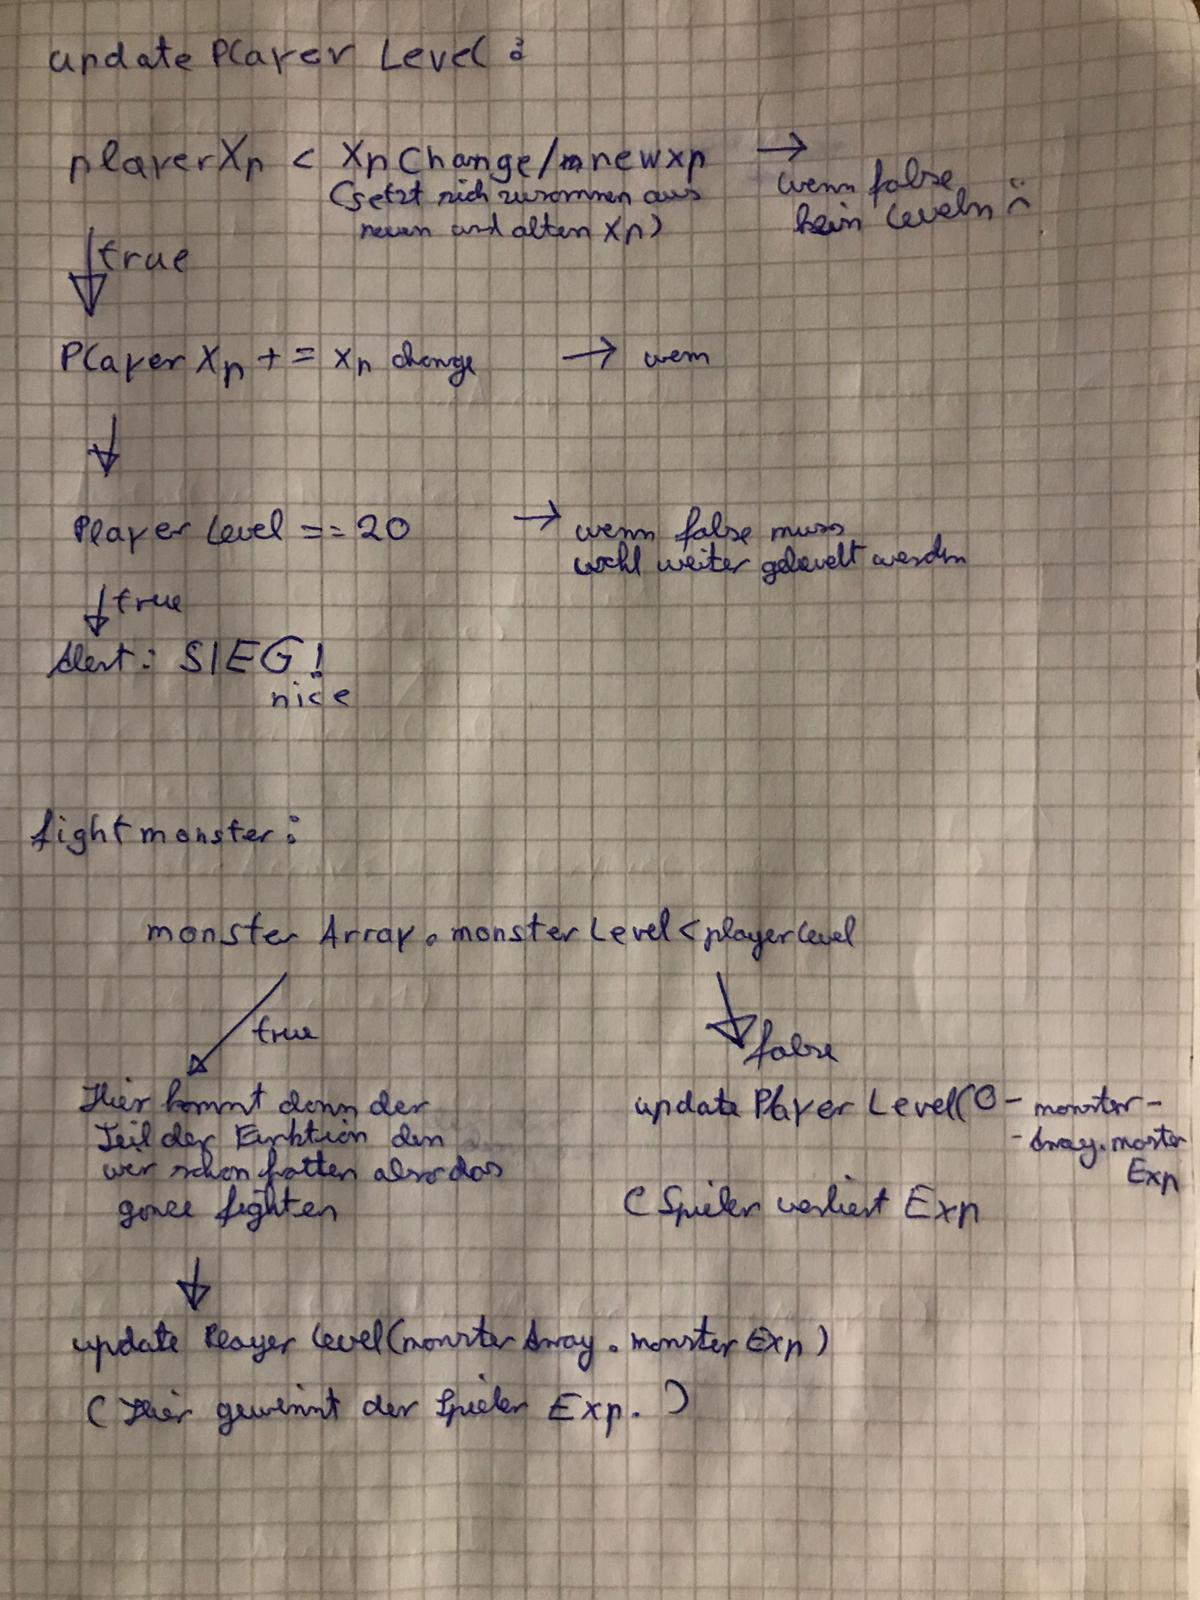 update Player Level :
playerXp < XpChange/newxp → wenn false
kein Leveln :(
(setzt sich zusammen aus
neuen und alten Xp)
true
Player Xp += xp change → wenn
Player Level == 20 → wenn false muss
wohl weiter gelevelt werden
true
Alert: SIEG!
nice
fight monster :
monster Array . monster Level < player Level
true
false
Hier kommt dann der
Teil der Funktion den
wir schon hatten also das
ganze fighten
update Player Level (0 - monster-
- Array. monster
Exp
(Spieler verliert Exp
update Player Level (monster Array . monster Exp)
(Hier gewinnt der Spieler Exp. )